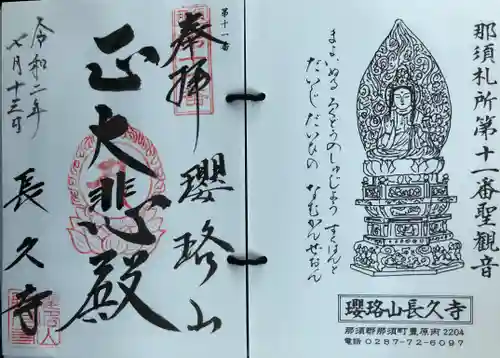 那須札所第十一番聖観音
まよいぬる ろくどうのしゅじょう すくはんと
だいじ だいひの なむかんぜおん
瓔珞山長久寺
那須郡那須町豊原丙2204
電話 0287-72-6097
第十一番
奉拝
瓔珞山
正大悲殿
令和二年
七月十三日
長久寺